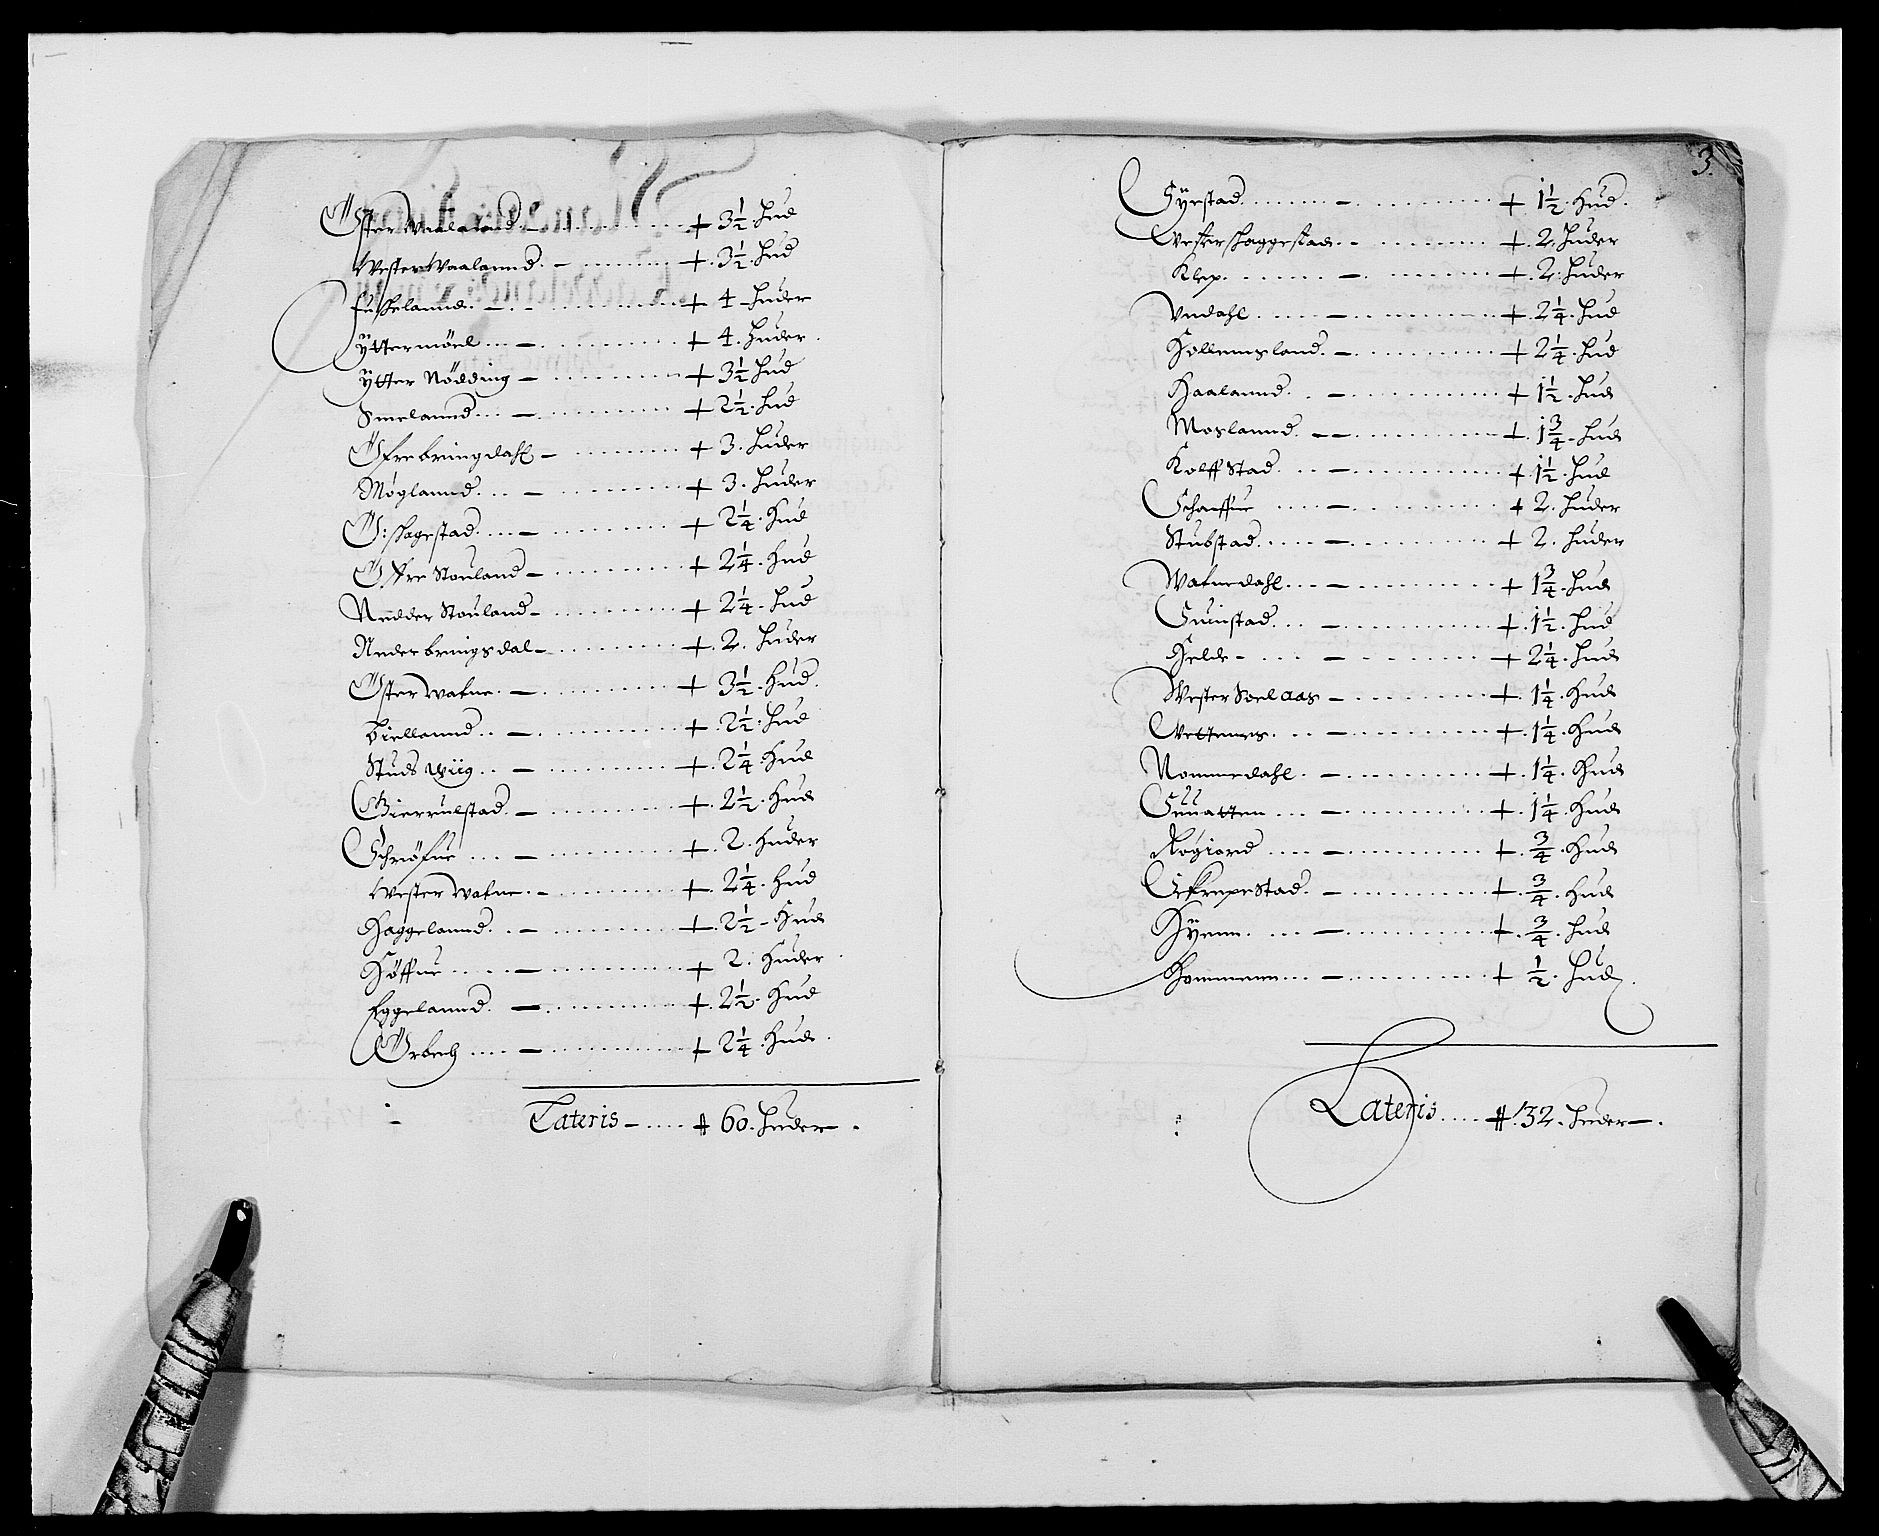 Öster Waaland - + 3½ Hud
Wester Waalannd. - + 3½ Hud
Fuskelannd. - + 4 - Huder
Ÿttermöel - + 4. Huder.
Ÿtter Nödding - + 3½ Hud
Smelannd - + 2½ Hud
Öfrebringdahl - + 3. Huder
Møglannd - + 3. Huder
Ö: Hagestad - + 2¼. Hud
Öffre Stouland - + 2¼. Hud
Nedder Stouland - + 2¼. Hud
Nederbringsdal - + 2. Huder
Öster Watne. - + 3½. Hud.
Biellannd - + 2½. Hud
Studs Wiig - + 2¼. Hud
Gierrulstad - + 2½. Hud
Schiöfue - + 2. Huder
Wester Watne. - + 2¼. Hud
Haggelannd. - + 2½ - Hud
Höffue - + 2. Huder
Eggelannd. - + 2½. Hud
Örbech - + 2¼. Hud.
Lateris - # 60. Huder.
3.
Syrstad - + 1½. Hud.
Vesterhaggestad - + 2. Huder
Klep. - + 2. Huder
Undahl - + 2¼. Hud
Hollemsland. - + 2¼. Hud
Haalannd. - + 1½. Hud
Moslannd. - + 1¾ - Hud
Kolff Stad. - + 1½. Hud
Schaffue - + 2. Huder
Stubstad - + 2. Huder
Watnedahl - + 1¾. Hud
Suinstad - + 1½. Hud
Helde - + 2¼. Hud
Wester Soelaas - + 1¼. Hud
Vettenes - + 1¼. Hud
Nommedahl. - + 1¼. Hud
Suuatten - + 1¼. Hud
Røgiord - + ¾. Hud
Schrepestad. - + ¾. Hud
Hÿenn. - + ¾. Hud
Hommenn - + ½. Hud.
Lateris # 32. Huder.